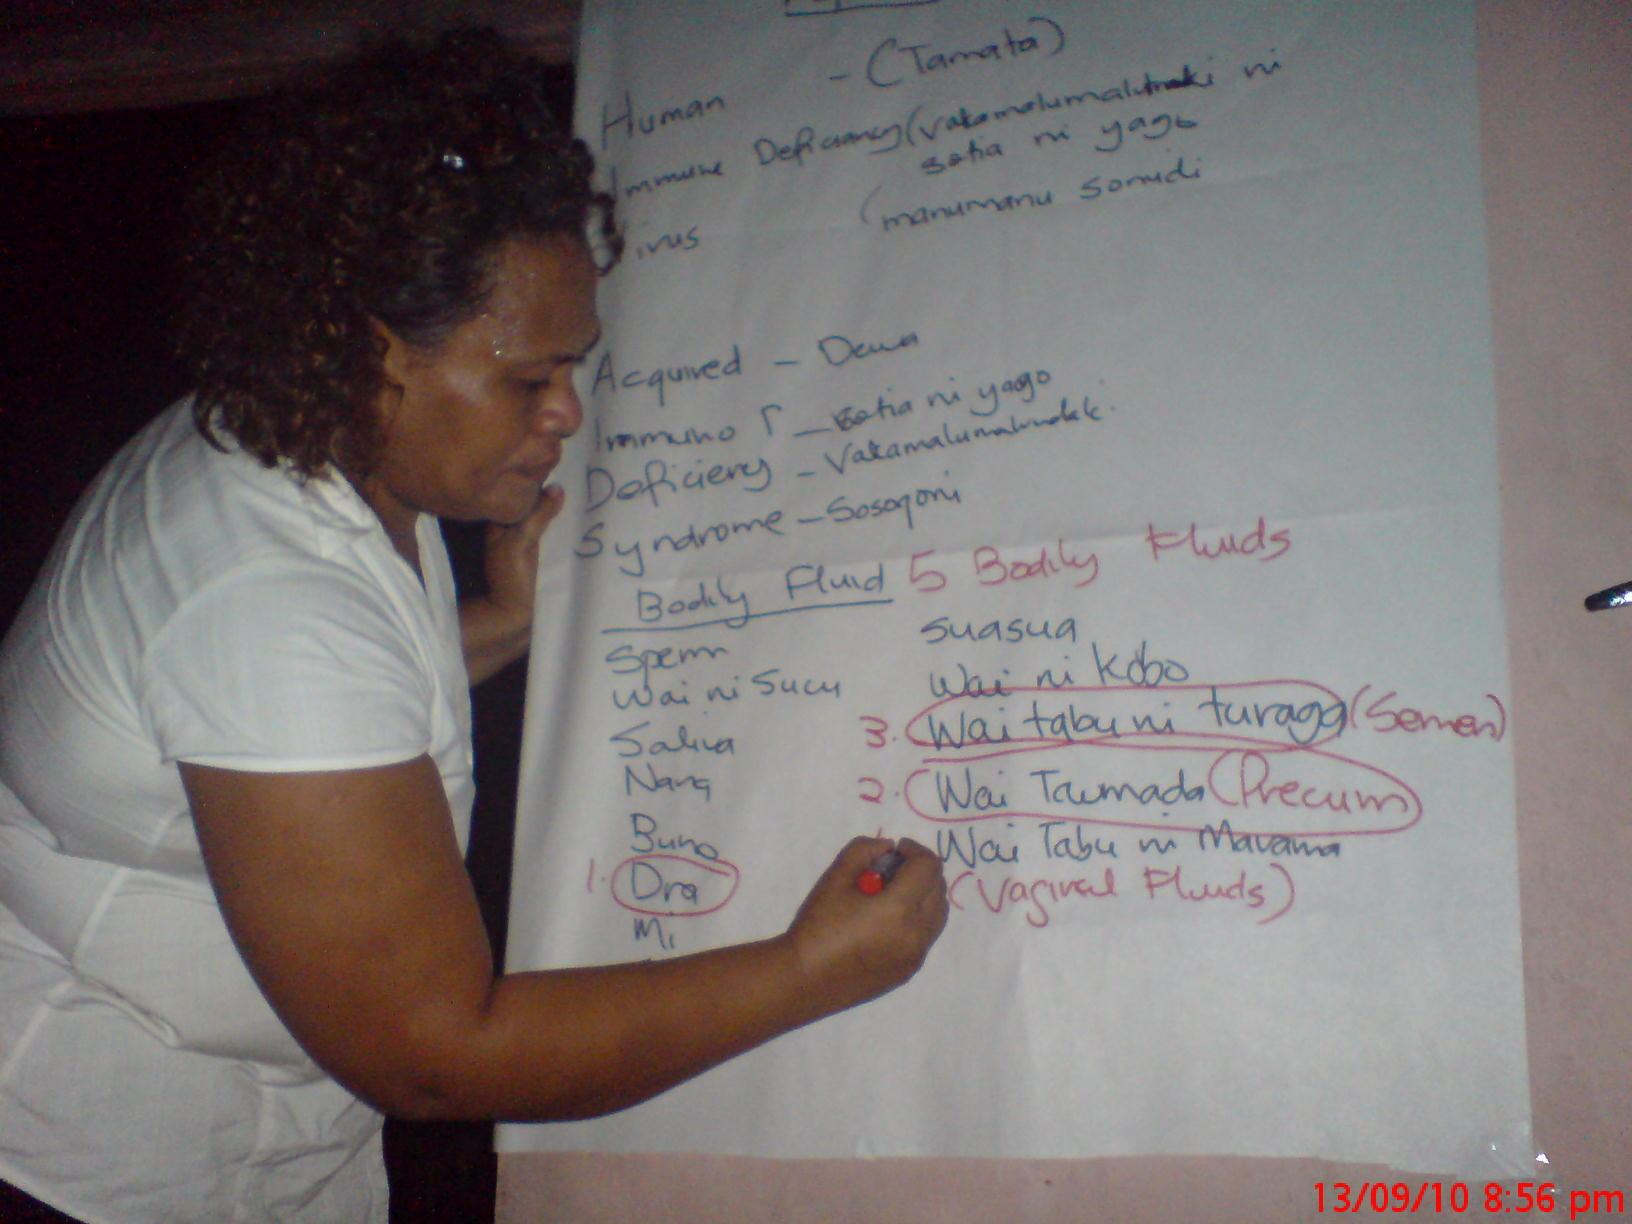 Human - (Tamata)
Immune Deficiancy (Vakamalumalumuki ni
sotia ni yago
Virus (manumanu somidi
Acquired - Dewa
Immuno - sotia ni yago
Deficiency - Vakamalumalumutaki
Syndrome - Sosoqoni
Bodily Fluid 5 Bodily Fluids
Sperm suasua
Wai ni Sucu Wai ni Kobo
Saliva 3. Wai tabu ni turaga (Semen)
Nana 2. Wai Taumada (Precum)
Buno Wai Tabu ni Marama
1. Dra (Vaginal Fluids)
Mi
13/09/10 8:56 pm